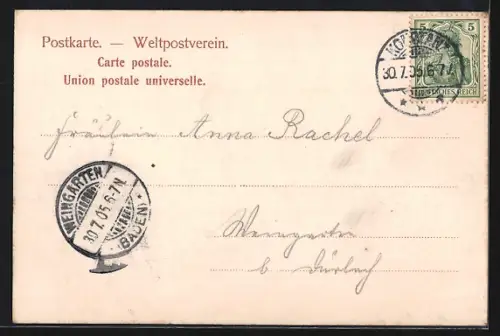 Postkarte. — Weltpostverein.
Carte postale.
Union postale universelle.
5 5
DEUTSCHES REICH
30.7.05.6-7N.
Fräulein Anna Rachel
WEINGARTEN
30.7.05.6-7N.
(BADEN)
Weingarten
b Durlach